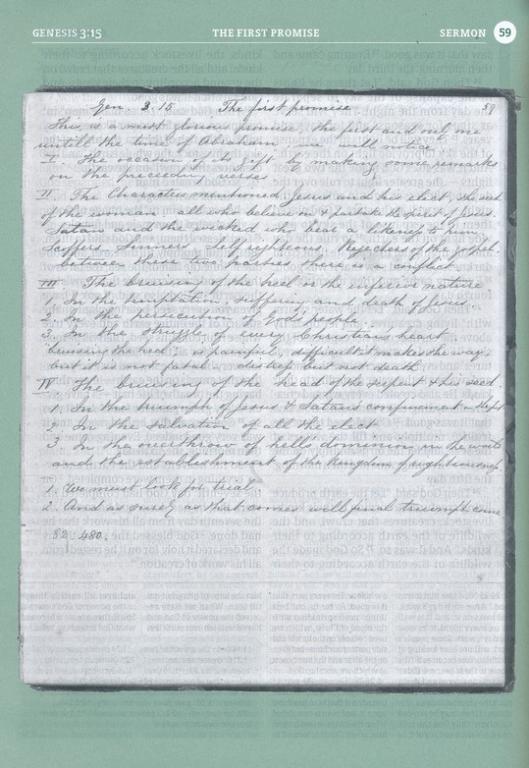 GENESIS 3:15 THE FIRST PROMISE SERMON 59
Gen. 3.15 The first promise 59
This is a most glorious promise, the first and only one
untill the time of Abraham we will notice
I. The occasion of its gift by making some remarks
on the preceeding verses
II. The Characters mentioned, Jesus and his elect, the seed
of the woman all who believe on & partake the spirit of Jesus.
Satan and the wicked who bear a likeness to him
Scoffers, sinners, self righteous, Rejecters of the gospel.
between these two parties there is a conflict
III. The bruising of the heel or the inferior nature
1. In the temptation, suffering and death of Jesus.
2. In the persecution of God's people
3. In the struggle of every Christians heart
bruising the heel is painful, difficult it makes the way,
but it is not fatal distress but not death
IV The bruising of the head of the serpent & his seed.
1. In the triumph of Jesus & Satans confinement
2. In the salvation of all the elect
3. In the overthrow of hell's dominion in the world
and the establishment of the Kingdom of righteousness
1. We must look for trial
2. And as surely as that comes will final triumph come
82. 480.